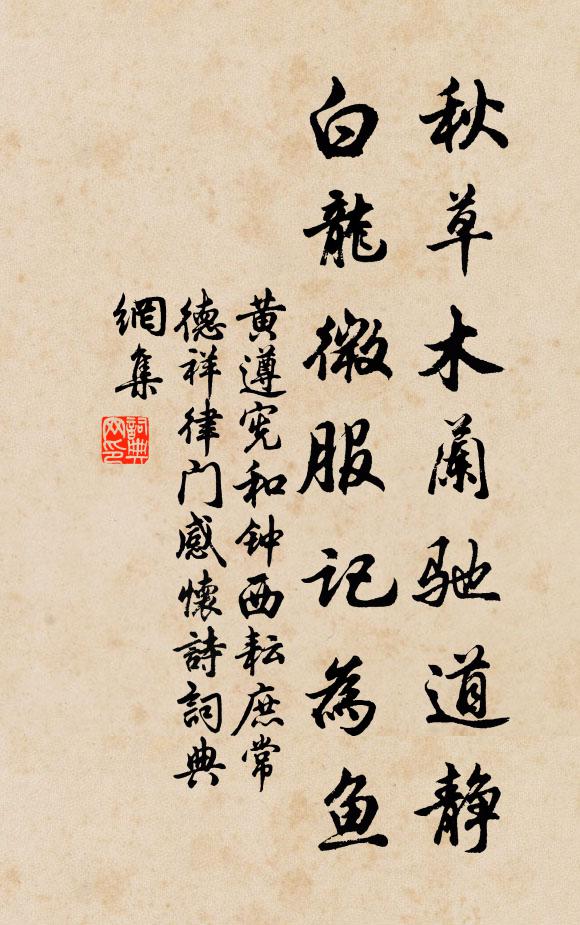 秋草木蘭馳道静
白龍微服記為魚
黄遵宪和钟西耘庶常
德祥律门感懷詩詞典
網集
詞典
网印